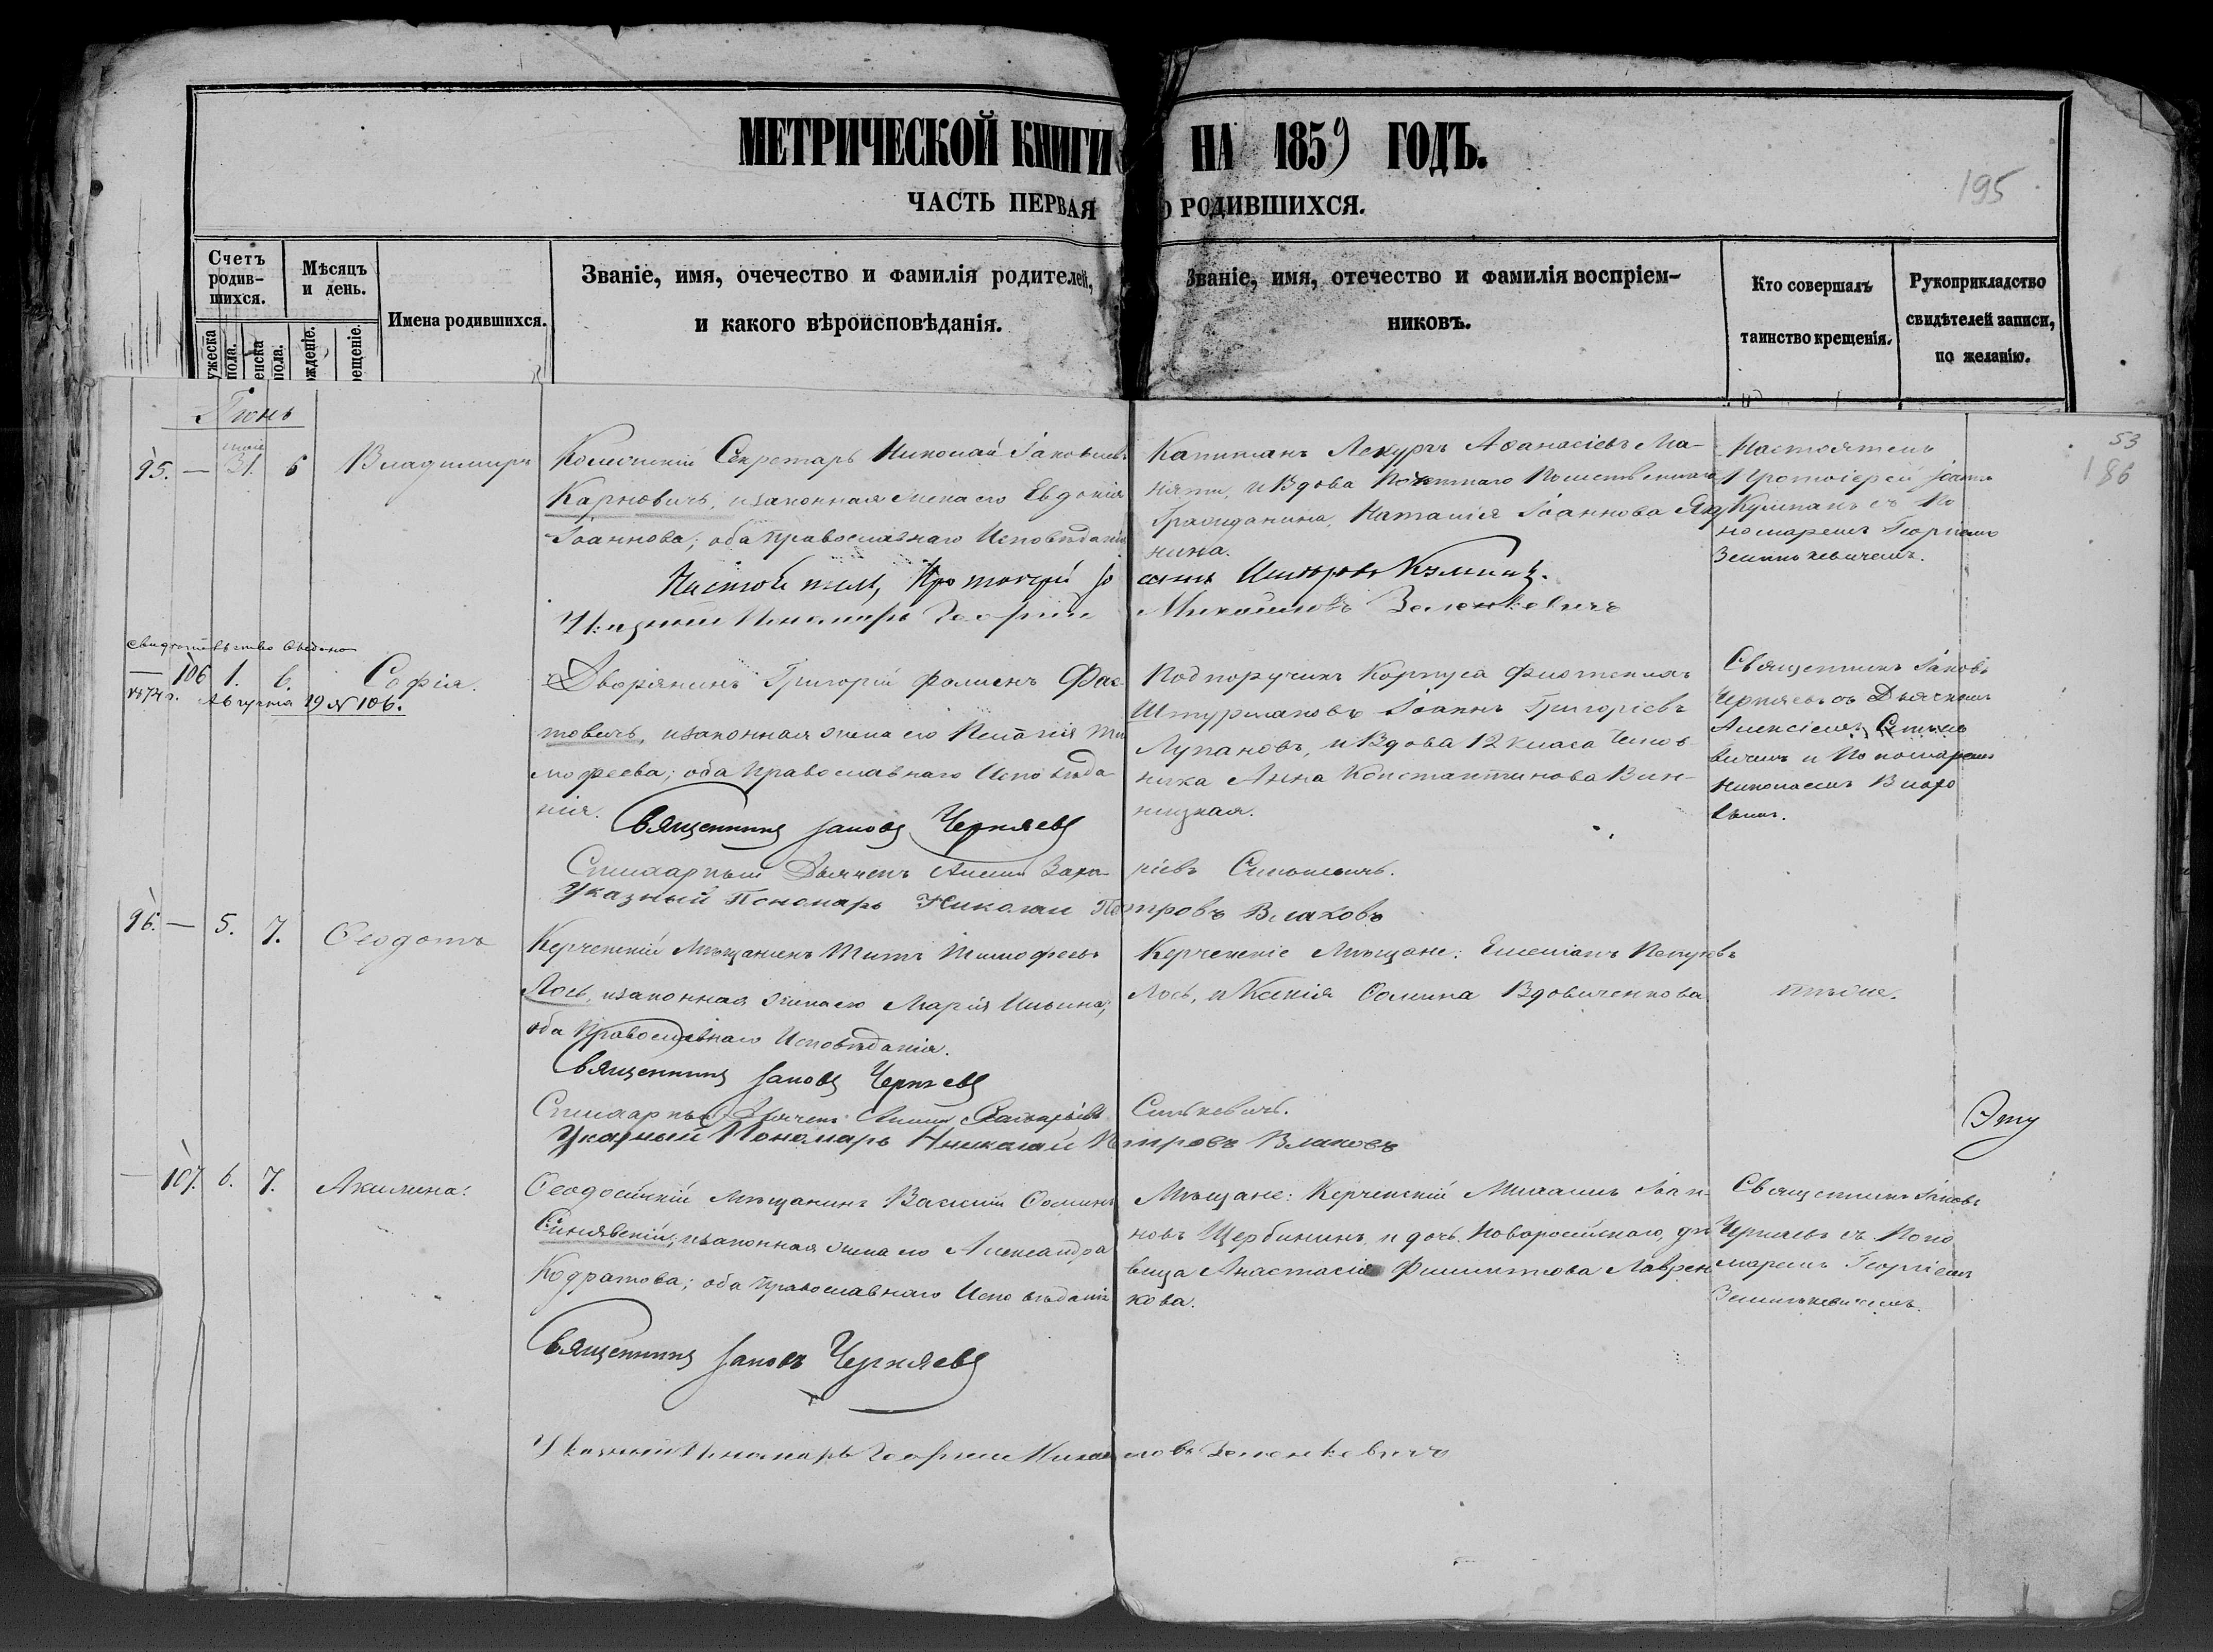 МЕТРИЧЕСКОЙ КНИГИ НА 1859 ГОДЪ.
ЧАСТЬ ПЕРВАЯ О РОДИВШИХСЯ.
195
Счетъ родив-
шихся.
Мѣсяцъ
и день.
Имена родившихся.
Званіе, имя, очечество и фамилія родителей,
и какого вѣроисповѣданія.
Званіе, имя, отечество и фамилія воспріем-
никовъ.
Кто совершалъ
таинство крещенія.
Рукоприкладство
свидѣтелей записи,
по желанію.
53
186
Іюнь
95. — 31. 6 Владимиръ
Коллежскій Секретарь Николай Іаковлевъ
Карповичъ, и законная жена его Евдокія
Іоаннова; оба Православнаго Исповѣданія
Капитанъ Афанасіевъ Ма-
и Вдова Потомственнаго
Гражданина, Наталія Іоаннова
нина.
Настоятель
Протоіерей Іоаннъ
съ По
номаремъ Георгіемъ
Зеленкевичемъ.
Настоятель, Протоіерей Іоаннъ
Указный Пономарь Георгій Михайловъ Зеленкевичъ
Свидѣтельство выдано
1874 г. Августа 19 № 106.
— 106 1. 6. Софія.
Дворянинъ Григорій
товичъ, и законная жена его Пелагія Ти
мофеева; оба Православнаго Исповѣда-
нія.
Подпоручикъ Корпуса Флотскихъ
Штурмановъ Іоаннъ Григоріевъ
Лупановъ, и Вдова 12 класа Чинов
ника Анна Константинова Вин-
ницкая.
Священникъ Іаковъ
Черняевъ съ Дьячкомъ
Алексіемъ
вичемъ и Пономаремъ
Николаемъ Влахо
вымъ.
Священникъ Іаковъ Черняевъ
Стихарный Дьячекъ Алексій Заха-
ріевъ
Указный Пономарь Николай Петровъ Влаховъ
96. — 5. 7. Ѳеодотъ
Керченскій Мѣщанинъ Титъ Тимофеевъ
Лось, и законная жена его Марія Ильина;
оба Православнаго Исповѣданія.
Керченскіе Мѣщане: Емеліанъ
Лось, и Ксенія Ѳомина Вдовиченкова
тѣже.
Священникъ Іаковъ Черняевъ
Стихарный Дьячекъ Алексій
Указный Пономарь Николай Петровъ Влаховъ
Эту
— 107. 6. 7. Акилина.
Ѳеодосійскій Мѣщанинъ Василій Ѳоминъ
Синявскій, и законная жена его Александра
Кодратова; оба Православнаго Исповѣданія
Мѣщане: Керченскій Михаилъ Іоан-
новъ Щербининъ, и дочь Новоросійскаго, дѣ
вица Анастасія Филиппова Лаврен
кова.
Священникъ Іаковъ
Черняевъ съ Поно
маремъ Георгіемъ
Зеленкевичемъ.
Священникъ Іаковъ Черняевъ
Указный Пономарь Георгій Михайловъ Зеленкевичъ